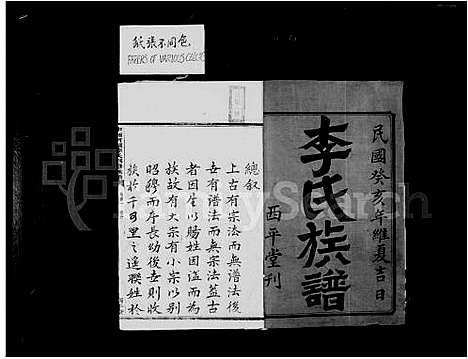 紙張不同色
PAPERS OF VARIOUS COLORS
民國癸亥年維夏吉日
李氏族譜
西平堂刊
總叙
上古有宗法而無譜法後
世有譜法而無宗法蓋古
者因生以賜姓因諡而為
族故有大宗有小宗以別
昭穆而序長幼後世則收
族於千百里之遙聯姓於
MySearch